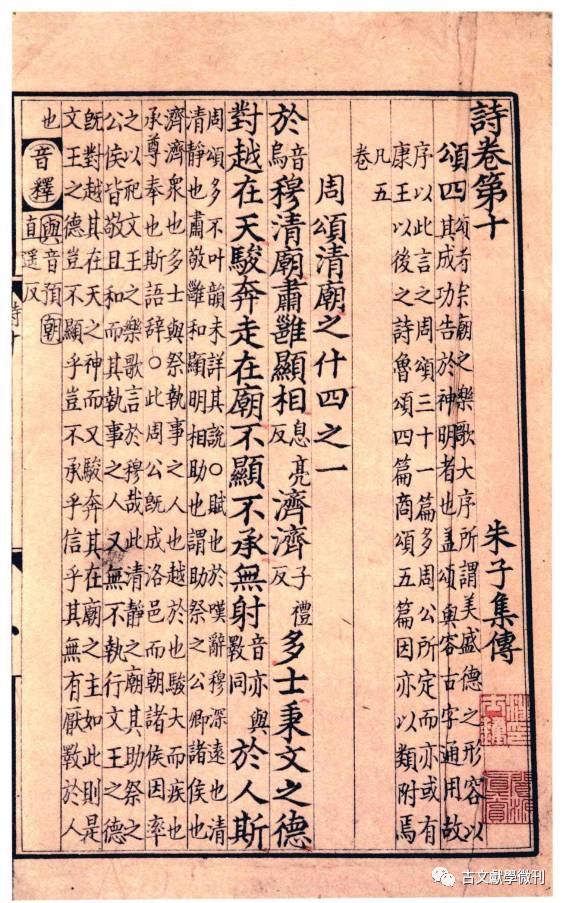 詩卷第十 朱子集傳
頌四 頌者宗廟之樂歌大序所謂美盛德之形容以
其成功告於神明者也盖頌與容古字通用故
序以此言之周頌三十一篇多周公所定而亦或有
康王以後之詩魯頌四篇商頌五篇因亦以類附焉
凡五
卷
周頌清廟之什四之一
於音烏穆清廟肅雝顯相息亮反濟濟子禮反多士秉文之德
對越在天駿奔走在廟不顯不承無射音亦與斁同於人斯
周頌多不叶韻未詳其說○賦也於嘆辭穆深遠也清
清靜也肅敬雝和顯明相助也謂助祭之公卿諸侯也
濟濟衆也多士與祭執事之人也越於也駿大而疾也
承尊奉也斯語辭○此周公既成洛邑而朝諸侯因率
之以祀文王之樂歌言於穆哉此清靜之廟其助祭之
公侯皆敬且和而其執事之人又無不執行文王之德
既對越其在天之神而又駿奔其在廟之主如此則是
文王之德豈不顯乎豈不承乎信乎其無有厭斁於人
也 音釋 與音預朝
直遥反
古文獻學微刊